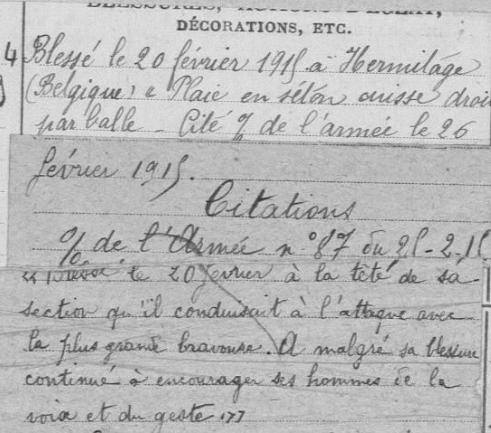 BLESSURES, ACTIONS D'ÉCLAT,
DÉCORATIONS, ETC.
4 Blessé le 20 février 1915 à Hermitage
(Belgique) " Plaie en séton cuisse droi
par balle - Cité % de l'armée le 26
février 1915.
Citations
% de l'Armée n° 87 du 25-2-15
"Blessé le 20 février à la tête de sa
section qu'il conduisait à l'attaque avec
la plus grande bravoure. A malgré sa blessure
continué à encourager ses hommes de la
voix et du geste."